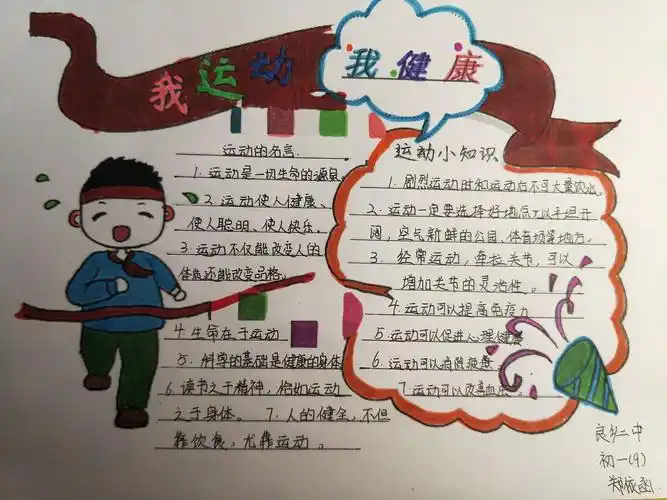 我运动 我健康
运动的名言
1. 运动是一切生命的源泉。
2. 运动使人健康、
使人聪明、使人快乐。
3. 运动不仅能改变人的
体质还能改变品格。
4. 生命在于运动
5. 科学的基础是健康的身体
6. 读书之于精神,恰如运动
之于身体。 7. 人的健全,不但
靠饮食,尤靠运动。
运动小知识
1. 剧烈运动时和运动后不可大量饮水。
2. 运动一定要选择好地点,以平坦开
阔,空气新鲜的公园、体育场等地方。
3. 经常运动,牵拉关节,可以
增加关节的灵活性。
4. 运动可以提高免疫力
5. 运动可以促进心理健康
6. 运动可以消除疲惫
7. 运动可以改善血
良乡二中
初一(9)
郑依函